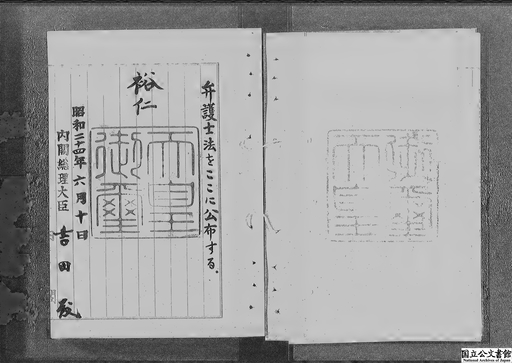 弁護士法をここに公布する。
裕仁
天皇
御璽
昭和二十四年六月十日
内閣総理大臣 吉田茂
国立公文書館
National Archives of Japan